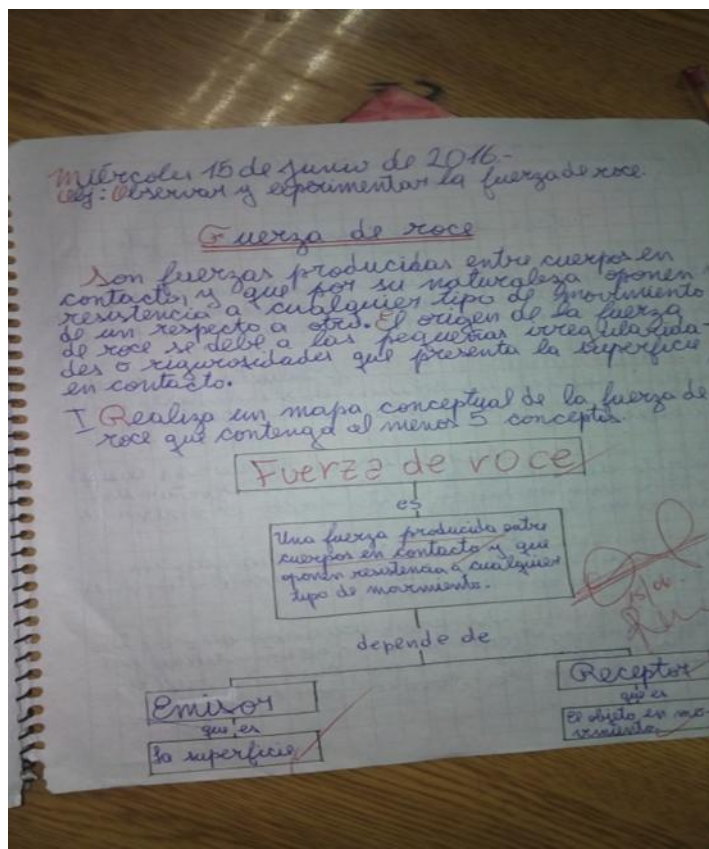 Miércoles 15 de Junio de 2016.-
Obj: Observar y experimentar la fuerza de roce
Fuerza de roce
Son fuerzas producidas entre cuerpos en
contacto, y que por su naturaleza oponen
resistencia a cualquier tipo de movimiento
de un respecto a otro. El origen de la fuerza
de roce se debe a las pequeñas irregularida-
des o rigurosidades que presenta la superficie
en contacto.
I Realiza un mapa conceptual de la fuerza de
roce que contenga al menos 5 conceptos.
Fuerza de roce
es
Una fuerza producida entre
cuerpos en contacto y que
oponen resistencia a cualquier
tipo de movimiento.
15/06.
depende de
Emisor
que es
La superficie
Receptor
que es
El objeto en mo-
vimiento.